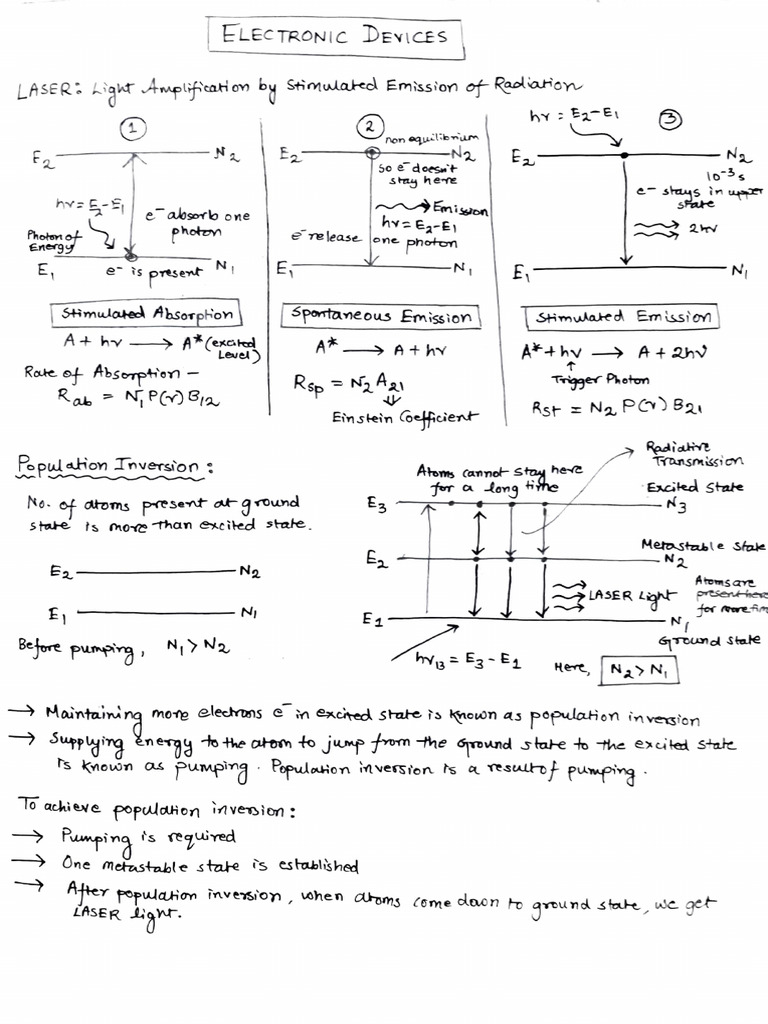 ELECTRONIC DEVICES
LASER: Light Amplification by Stimulated Emission of Radiation
①
E₂ N₂
hν = E₂-E₁
e⁻ absorb one
photon
Photon of
Energy
E₁ e⁻ is present N₁
Stimulated Absorption
A + hν → A* (excited
Level)
Rate of Absorption -
R_ab = N₁ P(r) B₁₂
②
non equilibrium
E₂ N₂
so e⁻ doesn't
stay here
Emission
hν = E₂-E₁
e⁻ release one photon
E₁ N₁
Spontaneous Emission
A* → A + hν
R_sp = N₂ A₂₁
⇓
Einstein Coefficient
hν = E₂-E₁ ③
E₂ N₂
10⁻³ s
e⁻ stays in upper
state
2hν
E₁ N₁
Stimulated Emission
A* + hν → A + 2hν
↑
Trigger Photon
R_st = N₂ P(r) B₂₁
Population Inversion:
No. of atoms present at ground
state is more than excited state.
E₂ N₂
E₁ N₁
Before pumping, N₁ > N₂
Radiative
Transmission
Atoms cannot stay here
for a long time
Excited State
E₃ N₃
Metastable State
E₂ N₂
LASER Light
Atoms are
present here
for more
E₁ N₁
Ground state
hν₁₃ = E₃ - E₁
Here, N₂ > N₁
→ Maintaining more electrons e⁻ in excited state is known as population inversion
→ Supplying energy to the atom to jump from the ground state to the excited state
is known as pumping. Population inversion is a result of pumping.
To achieve population inversion:
→ Pumping is required
→ One metastable state is established
→ After population inversion, when atoms come down to ground state, we get
LASER light.